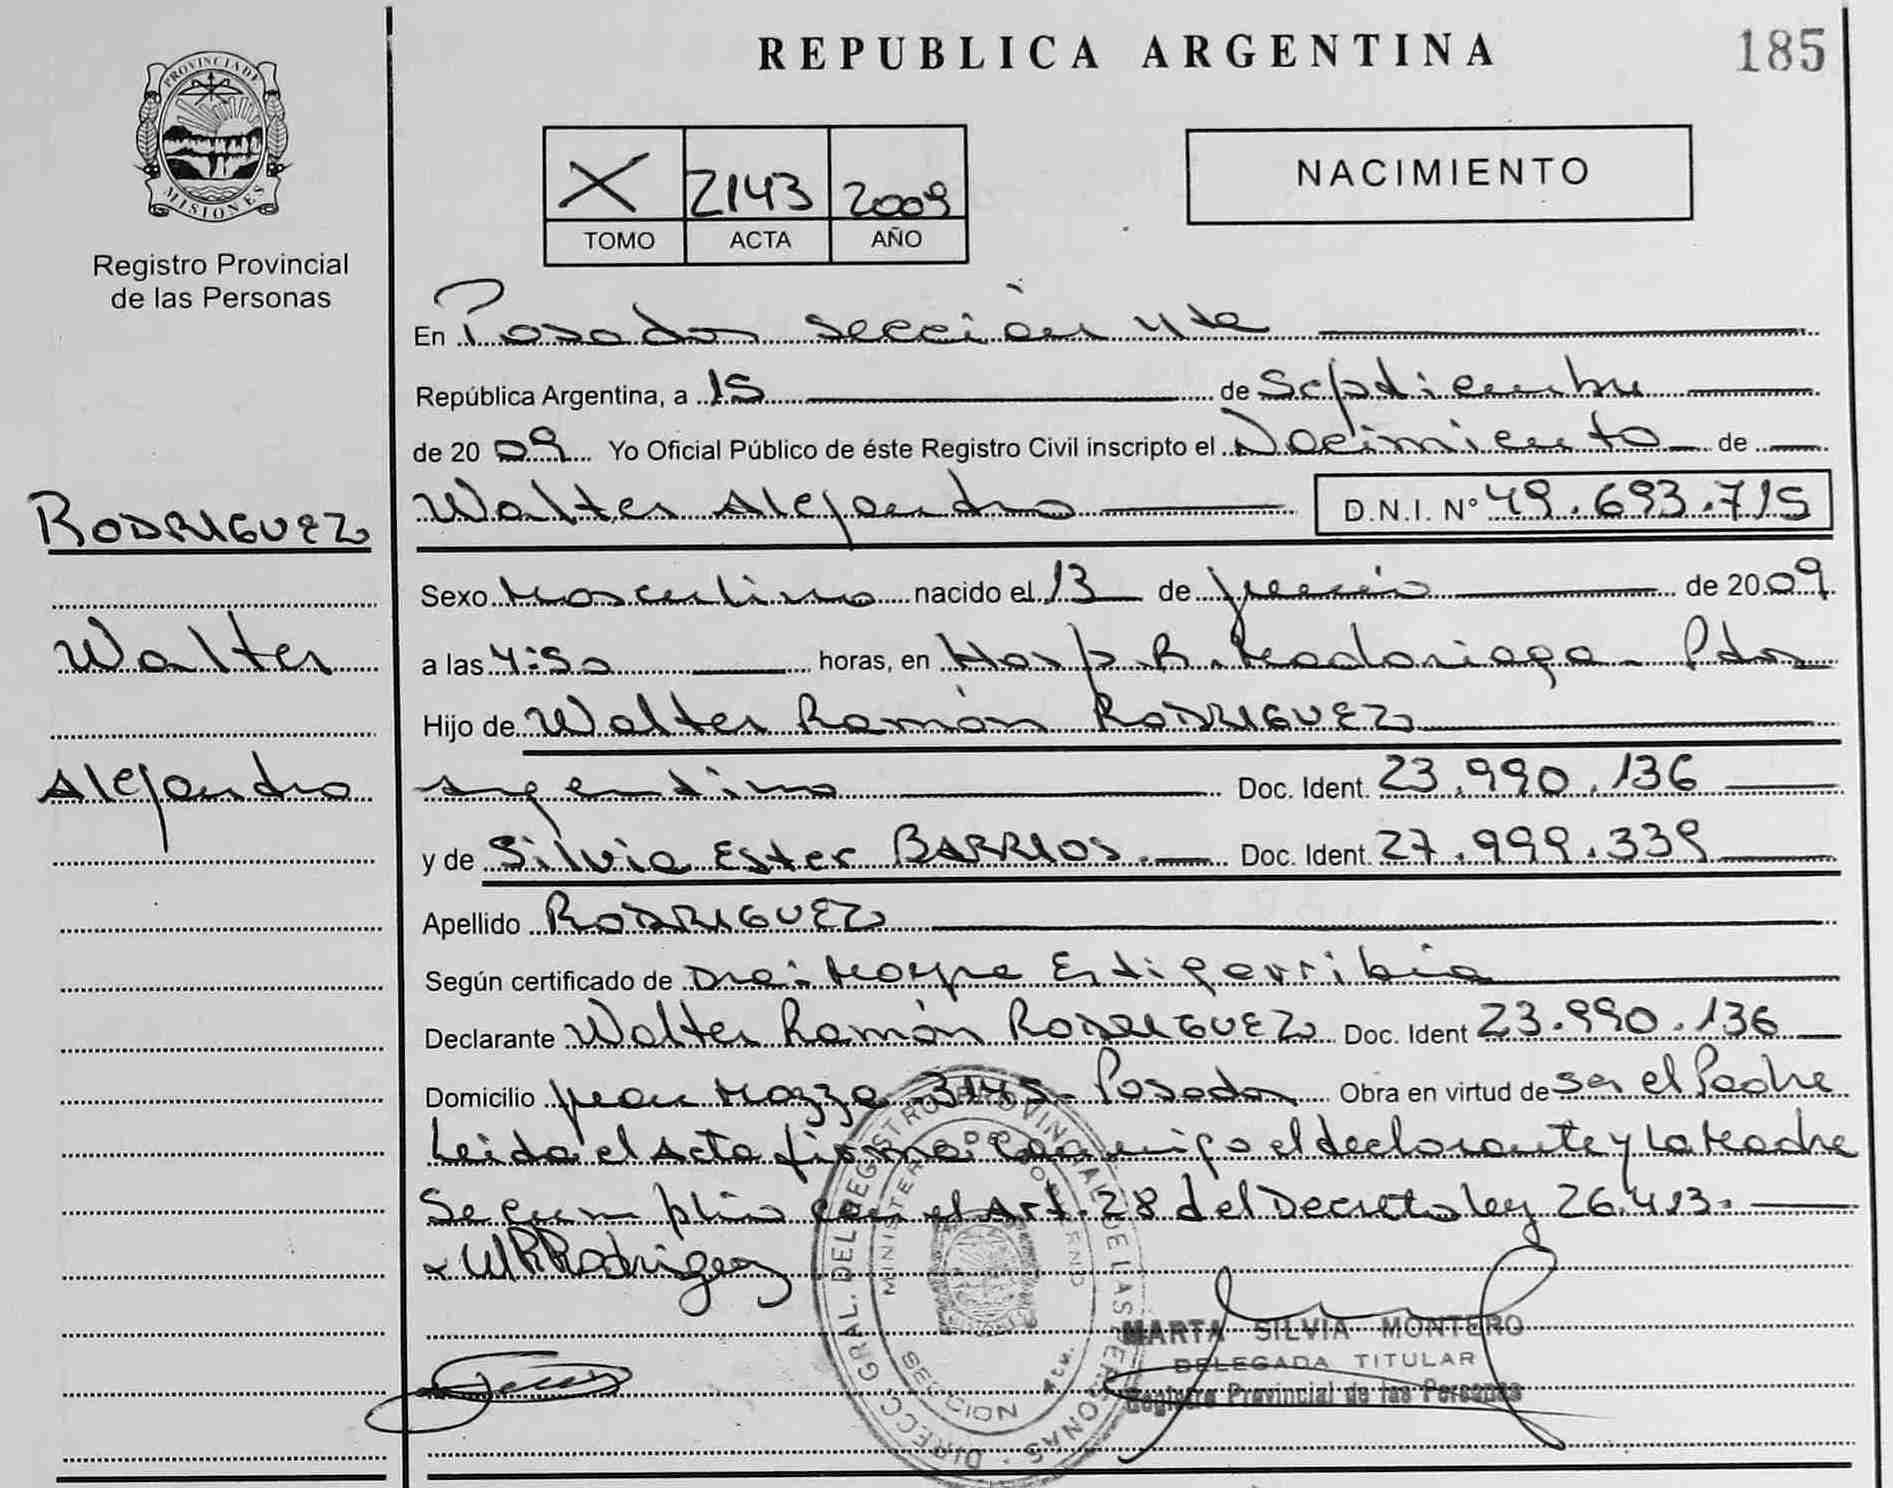 REPUBLICA ARGENTINA
185
PROVINCIA DE
MISIONES
Registro Provincial
de las Personas
X 2143 2009
TOMO ACTA AÑO
NACIMIENTO
En Posadas sección 4ta
República Argentina, a 15 de Septiembre
de 2009 Yo Oficial Público de éste Registro Civil inscripto el Nacimiento de
RODRIGUEZ
Walter
Alejandro
Walter Alejandro D.N.I. N° 49.693.715
Sexo Masculino nacido el 13 de de 2009
a las 4:50 horas, en Hosp. R. Madariaga - Pdas
Hijo de Walter Ramón RODRIGUEZ
Argentino Doc. Ident. 23.990.136
y de Silvia Ester BARRIOS. Doc. Ident. 27.999.339
Apellido RODRIGUEZ
Según certificado de Dra: Estigarribia
Declarante Walter Ramón RODRIGUEZ Doc. Ident 23.990.136
Domicilio Juan Mazza 3145 - Posadas Obra en virtud de ser el Padre
Leida el Acta firma conmigo el declarante y la Madre
Se cumplió con el Art. 28 del Decreto ley 26.413.
WRRodriguez
DIRECC. GRAL. DEL REGISTRO PROVINCIAL DE LAS PERSONAS
MINISTERIO DE GOBIERNO
SECCION 4ta.
MARTA SILVIA MONTERO
DELEGADA TITULAR
Registro Provincial de las Personas